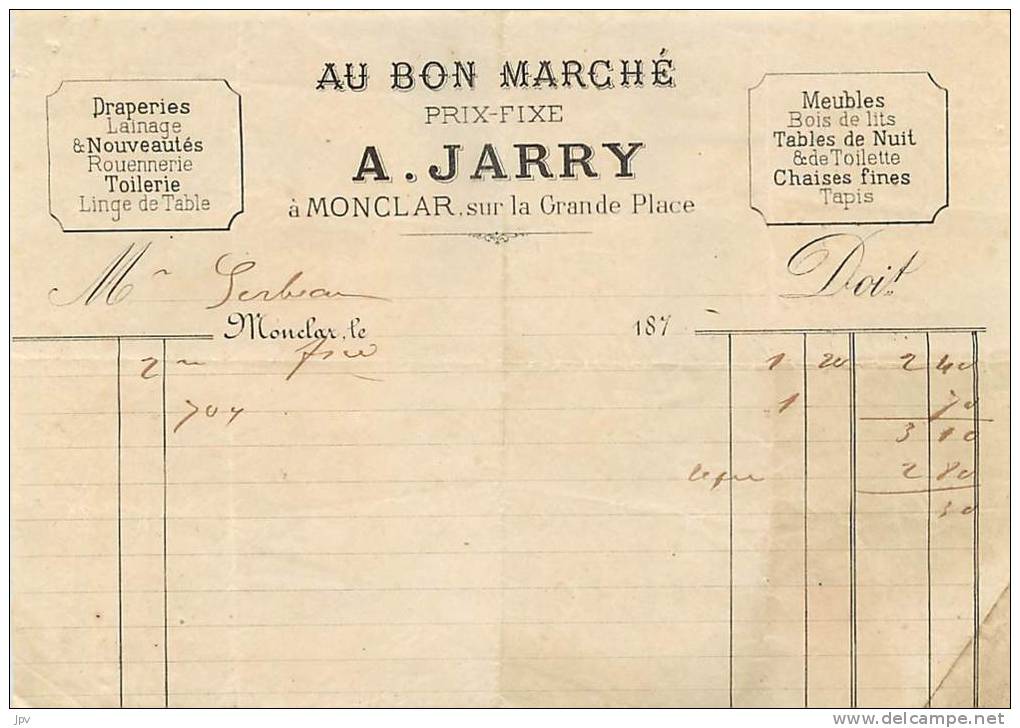 AU BON MARCHÉ
PRIX-FIXE
A. JARRY
à MONCLAR, sur la Grande Place
Draperies
Lainage
& Nouveautés
Rouennerie
Toilerie
Linge de Table
Meubles
Bois de lits
Tables de Nuit
& de Toilette
Chaises fines
Tapis
Mr
Doit
Monclar, le 187
2 m 1 20 2 40
1 70
3 10
2 80
30
jpv
www.delcampe.net